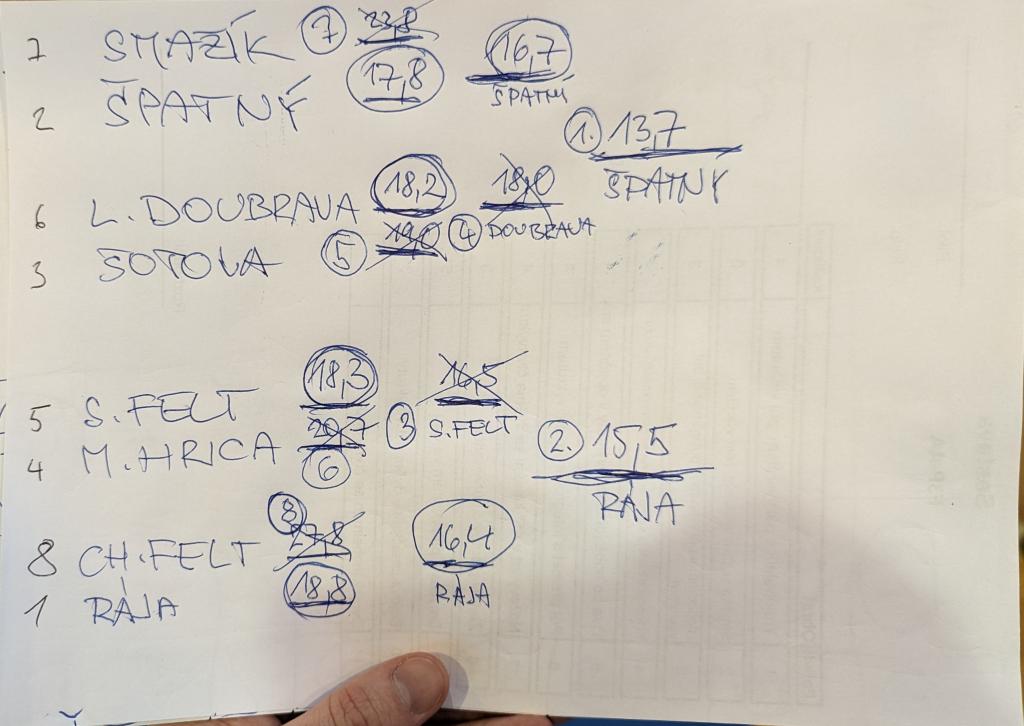 7 SMAZÍK 7 23,8
17,8 16,7
2 ŠPATNÝ ŠPATNÝ
1. 13,7
ŠPATNÝ
6 L. DOUBRAVA 18,2 18,0
3 ŠOTOLA 5 19,0 4 DOUBRAVA
5 S. FELT 18,3 16,5
4 M. HRICA 20,7 3 S. FELT
6
2. 15,5
RÁJA
8
8 CH. FELT 27,8 16,4
1 RÁJA 18,8 RÁJA